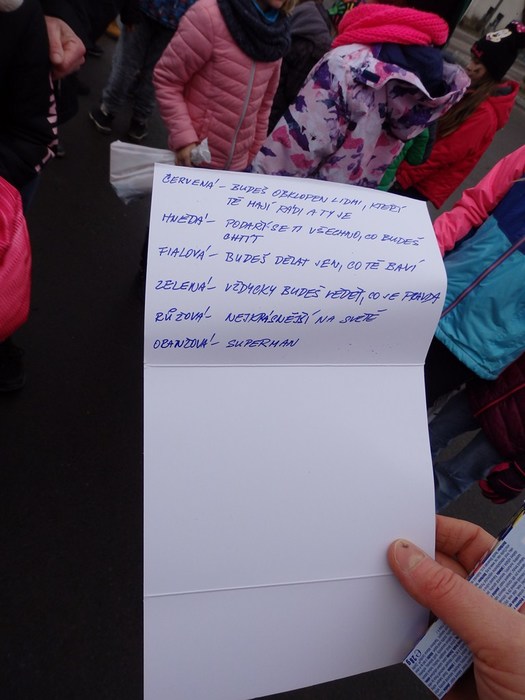 ČERVENÁ – BUDEŠ OBKLOPEN LIDMI, KTEŘÍ
TĚ MAJÍ RÁDI A TY JE
HNĚDÁ – PODAŘÍ SE TI VŠECHNO, CO BUDEŠ
CHTÍT
FIALOVÁ – BUDEŠ DĚLAT JEN, CO TĚ BAVÍ
ZELENÁ – VŽDYCKY BUDEŠ VĚDĚT, CO JE PRAVDA
RŮŽOVÁ – NEJKRÁSNĚJŠÍ NA SVĚTĚ
ORANŽOVÁ – SUPERMAN